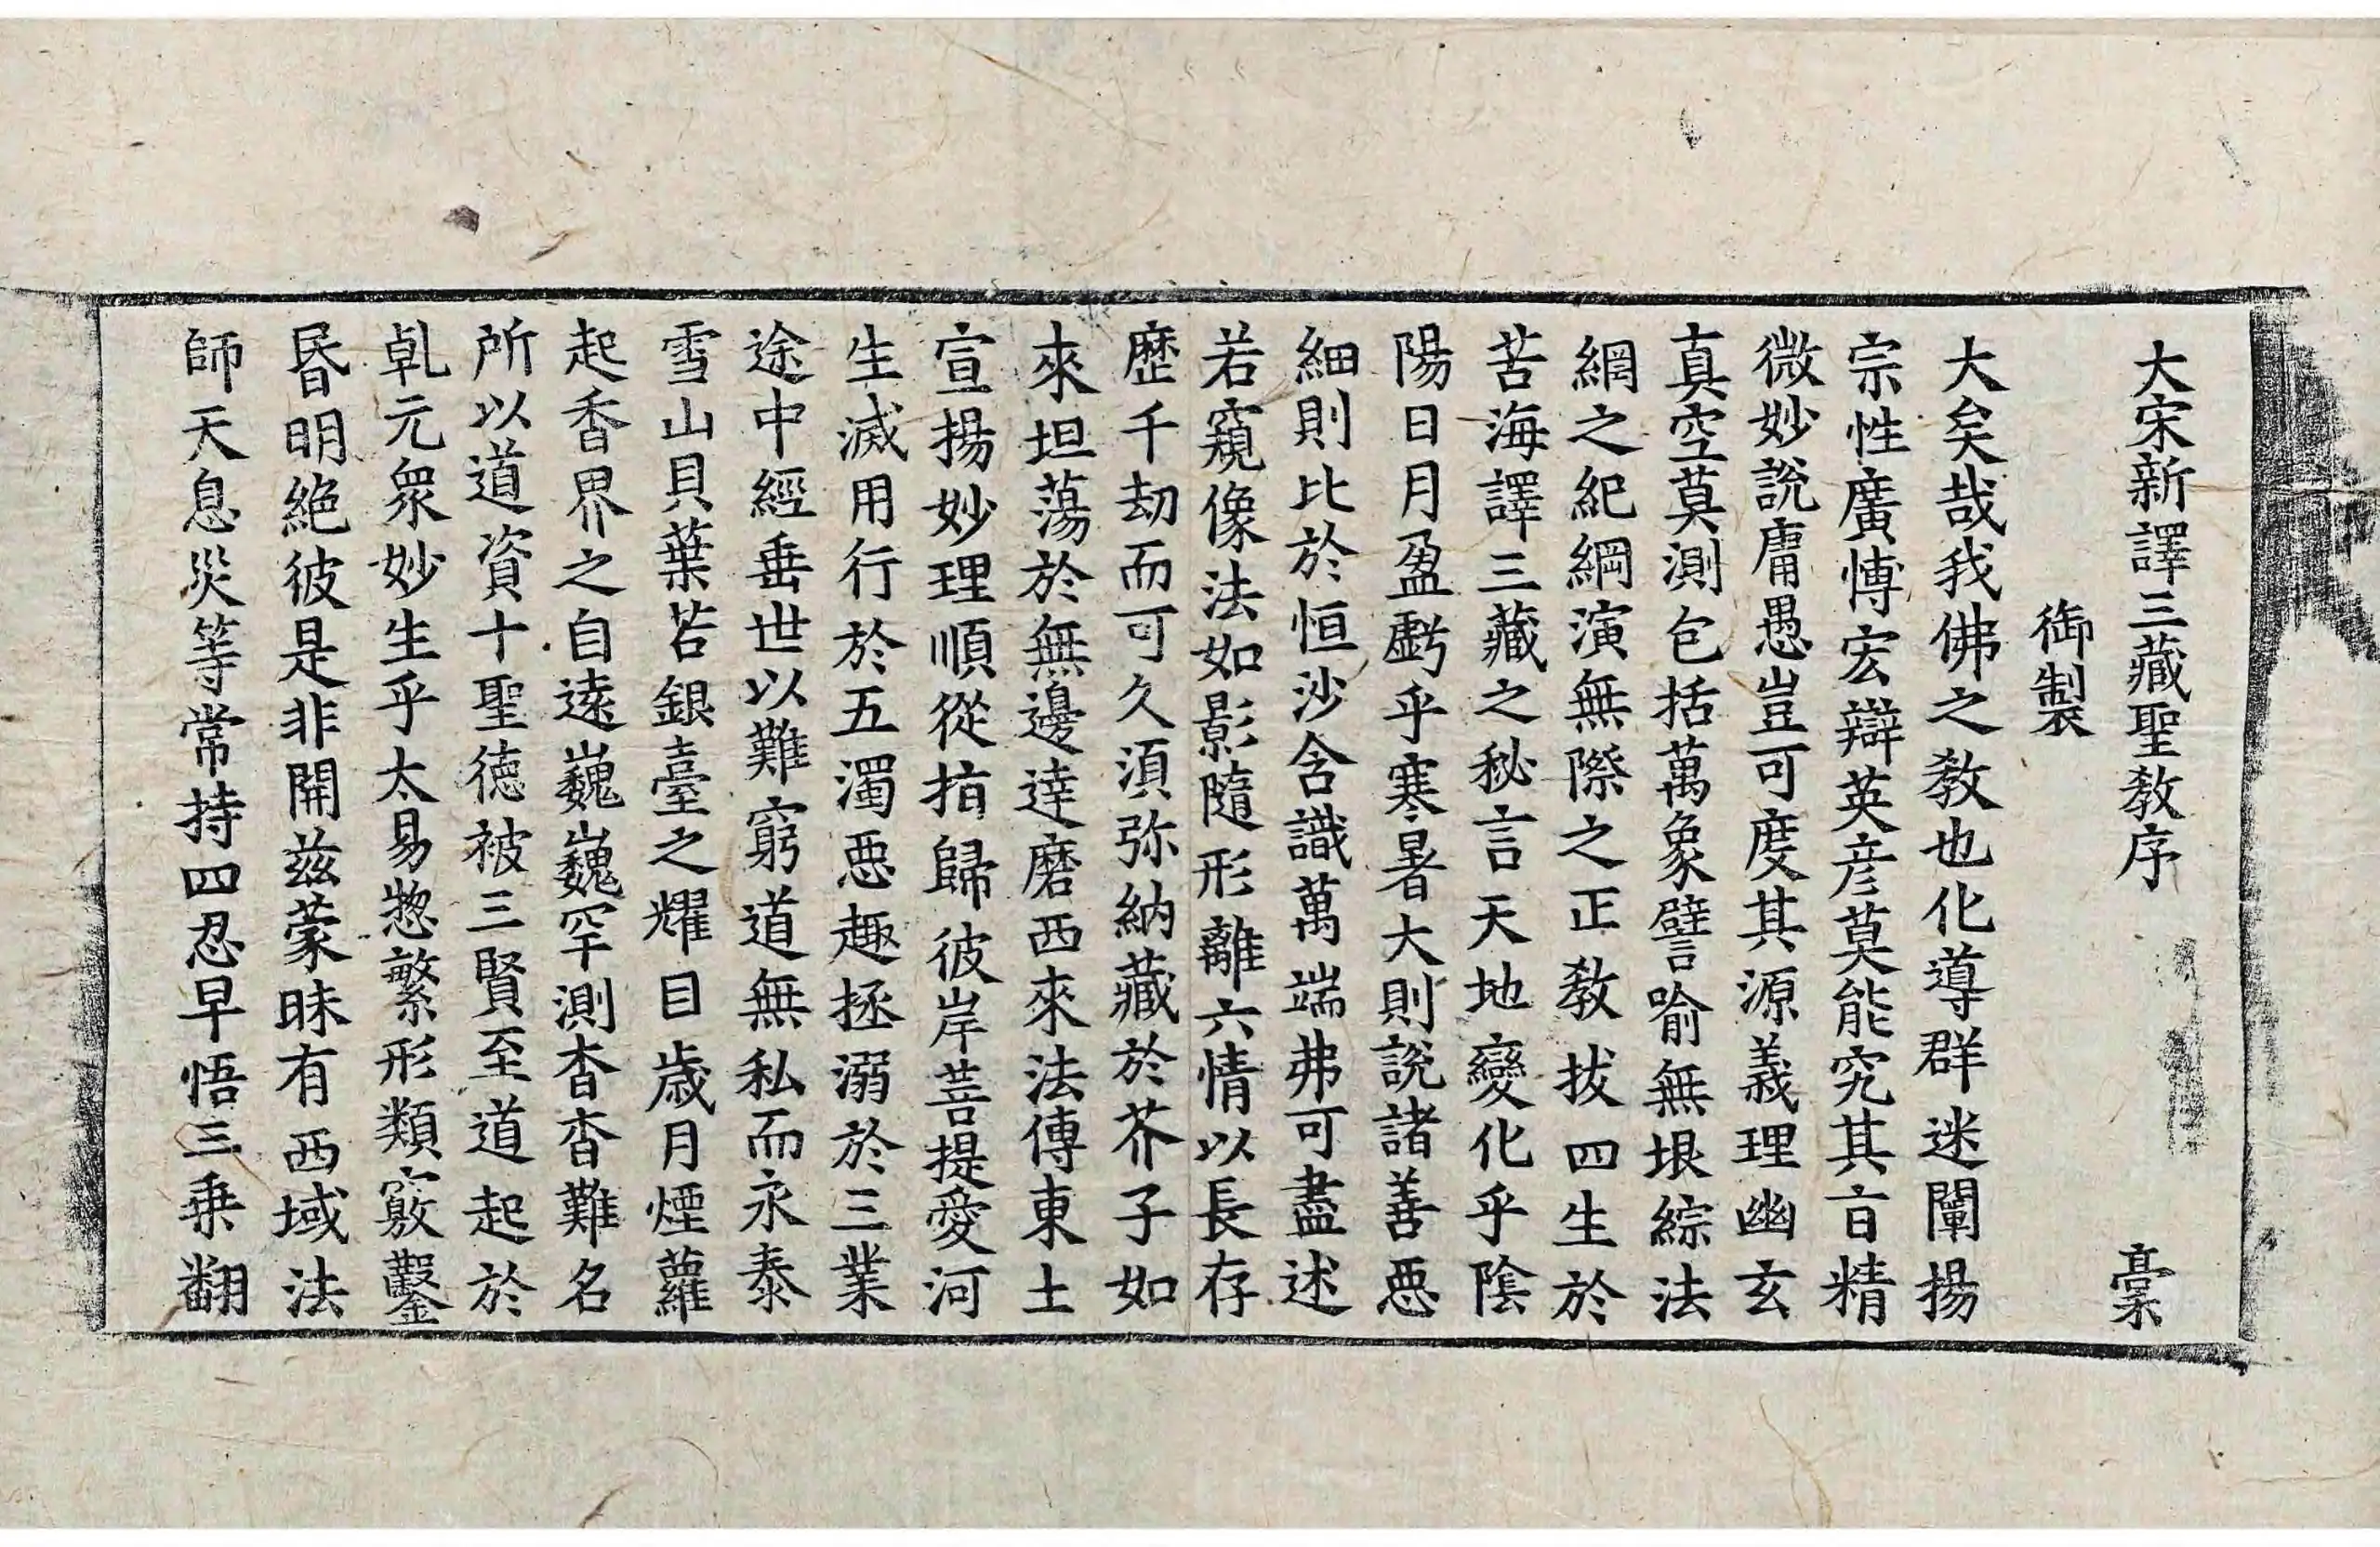 大宋新譯三藏聖教序 槀
御製
大矣哉我佛之教也化導群迷闡揚
宗性廣愽宏辯英彦莫能究其㫖精
微妙説庸愚豈可度其源義理幽玄
真空莫測包括萬象譬喻無垠綜法
綱之紀綱演無際之正教拔四生於
苦海譯三藏之秘言天地變化乎陰
陽日月盈虧乎寒暑大則説諸善惡
細則比於恒沙含識萬端弗可盡述
若窺像法如影隨形離六情以長存
歷千劫而可久湏弥納藏於芥子如
來坦蕩於無邊達磨西來法傳東土
宣揚妙理順從指歸彼岸菩提愛河
生滅用行於五濁惡趣拯溺於三業
途中經垂世以難窮道無私而永泰
雪山貝葉若銀臺之耀目歲月煙蘿
起香界之自遠巍巍罕測杳杳難名
所以道資十聖德被三賢至道起於
乹元衆妙生乎太易惣繁形類竅鑿
昬明絶彼是非開兹蒙昧有西域法
師天息災等常持四忍早悟三乗翻